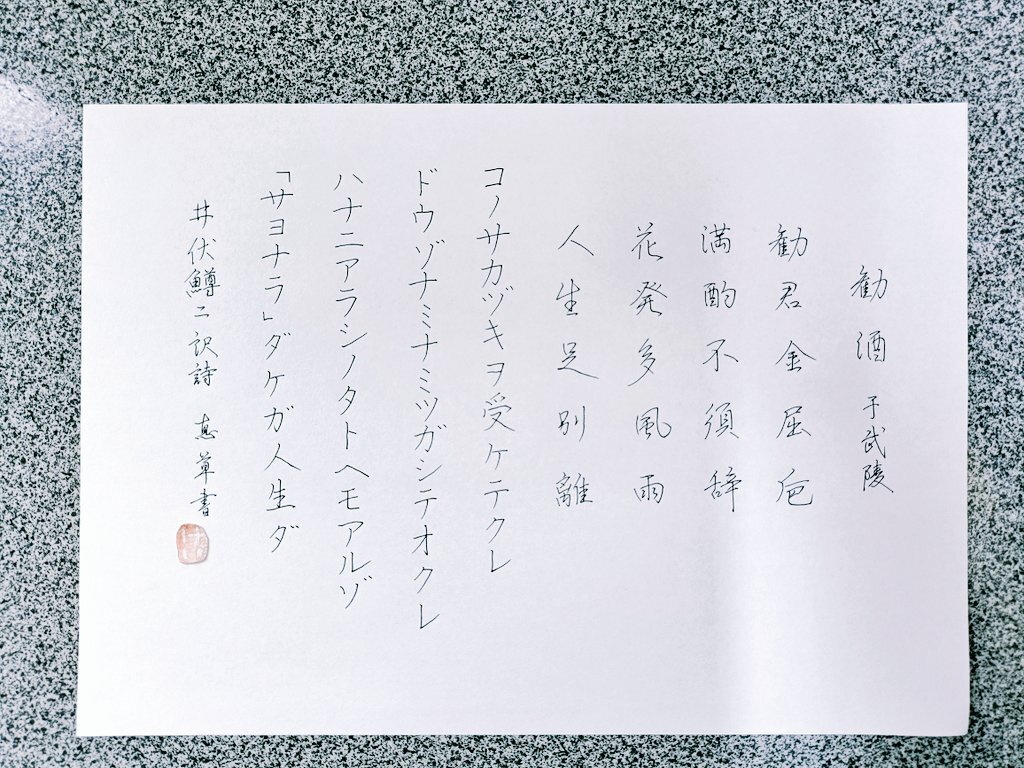 勧酒 于武陵
勧君金屈卮
満酌不須辞
花発多風雨
人生足別離
コノサカヅキヲ受ケテクレ
ドウゾナミナミツガシテオクレ
ハナニアラシノタトヘモアルゾ
「サヨナラ」ダケガ人生ダ
井伏鱒二訳詩 恵草書